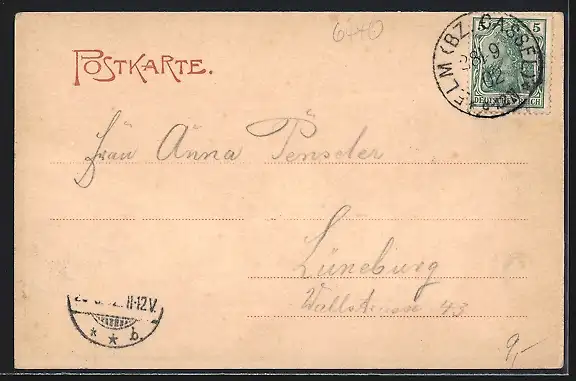 6440
POSTKARTE.
5 5
ELM (BZ. CASSEL)
28. 9
02
DEUTSCHES REICH
Frau Anna Penseler
Lüneburg
Wallstrasse 43
II-12V.
* * b.
9,-